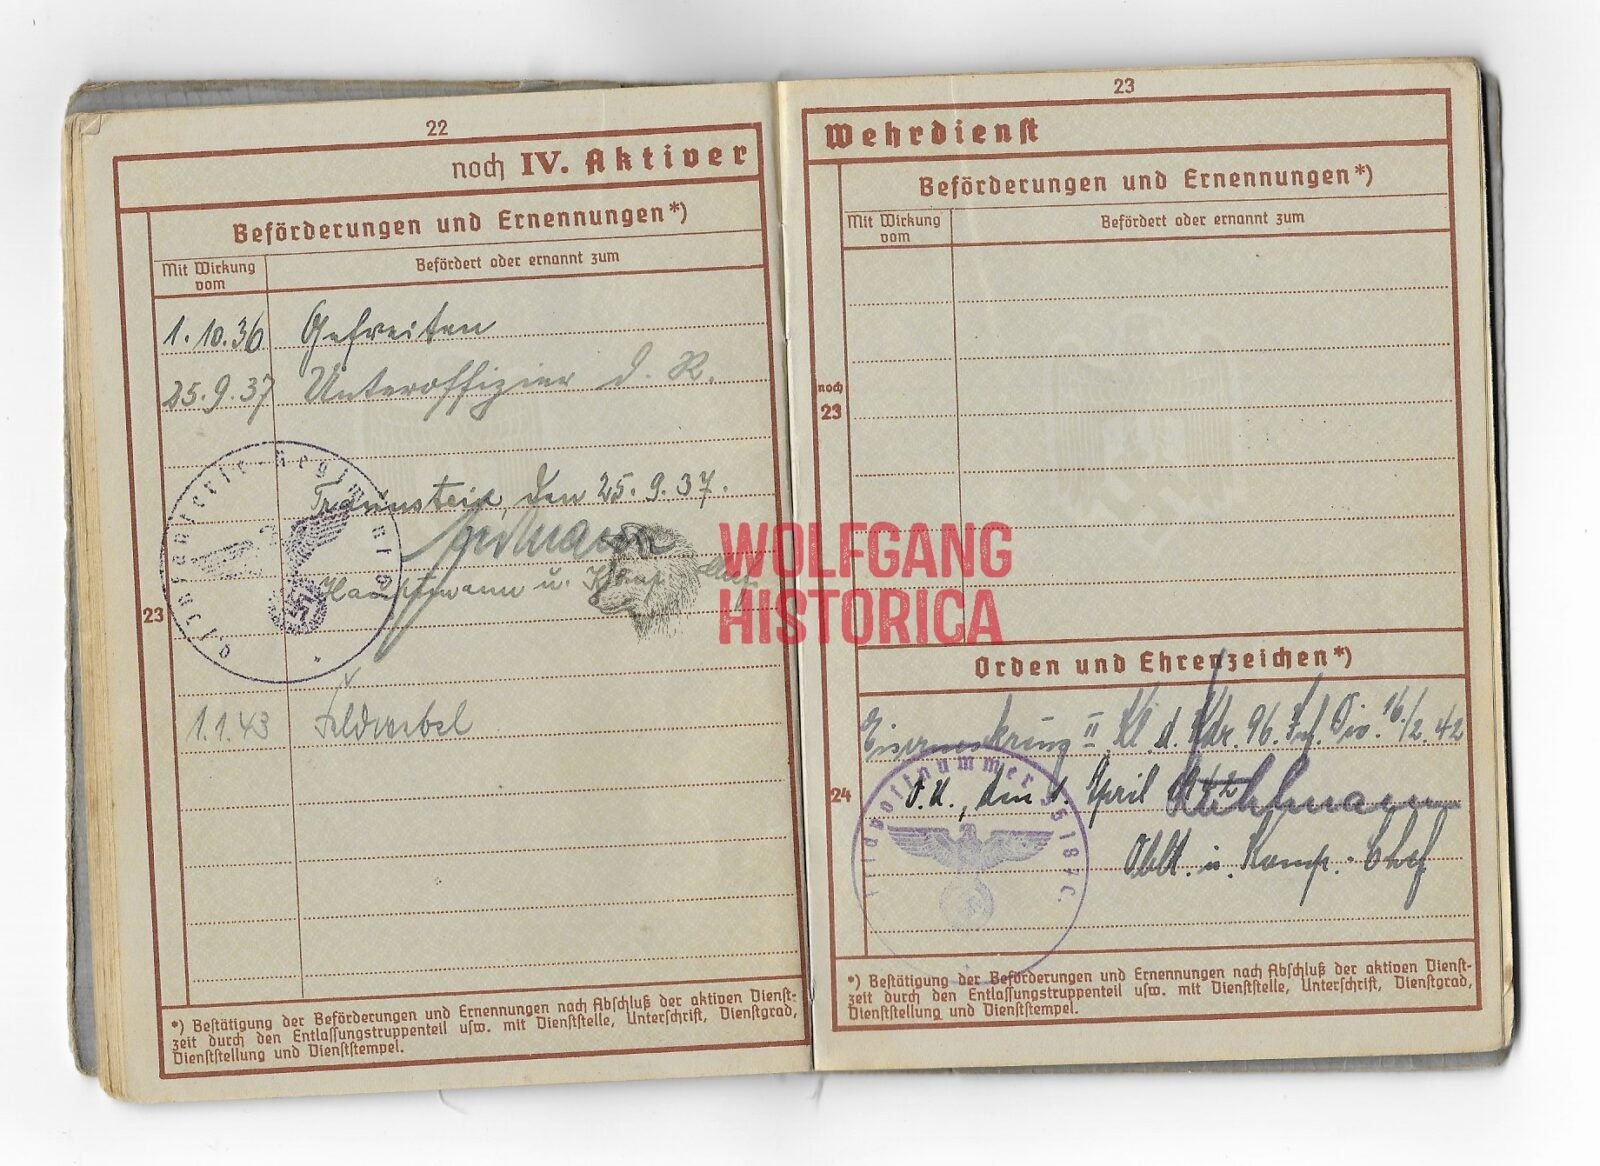 22
noch IV. Aktiver
Beförderungen und Ernennungen*)
Mit Wirkung
vom
Befördert oder ernannt zum
1.10.36 Gefreiten
25.9.37 Unteroffizier d. R.
Traunstein, den 25.9.37.
Hauptmann u.
23
1.1.43 Feldwebel
*) Bestätigung der Beförderungen und Ernennungen nach Abschluß der aktiven Dienst-
zeit durch den Entlassungstruppenteil usw. mit Dienststelle, Unterschrift, Dienstgrad,
Dienststellung und Dienststempel.
23
Wehrdienst
Beförderungen und Ernennungen*)
Mit Wirkung
vom
Befördert oder ernannt zum
noch
23
WOLFGANG
HISTORICA
Orden und Ehrenzeichen*)
II Kl. d. Kdr. 96. Inf. Div. 16./2. 42
24
O.U., den 1. April 42
Feldpostnummer
Oblt. u. Komp.-Chef
*) Bestätigung der Beförderungen und Ernennungen nach Abschluß der aktiven Dienst-
zeit durch den Entlassungstruppenteil usw. mit Dienststelle, Unterschrift, Dienstgrad,
Dienststellung und Dienststempel.